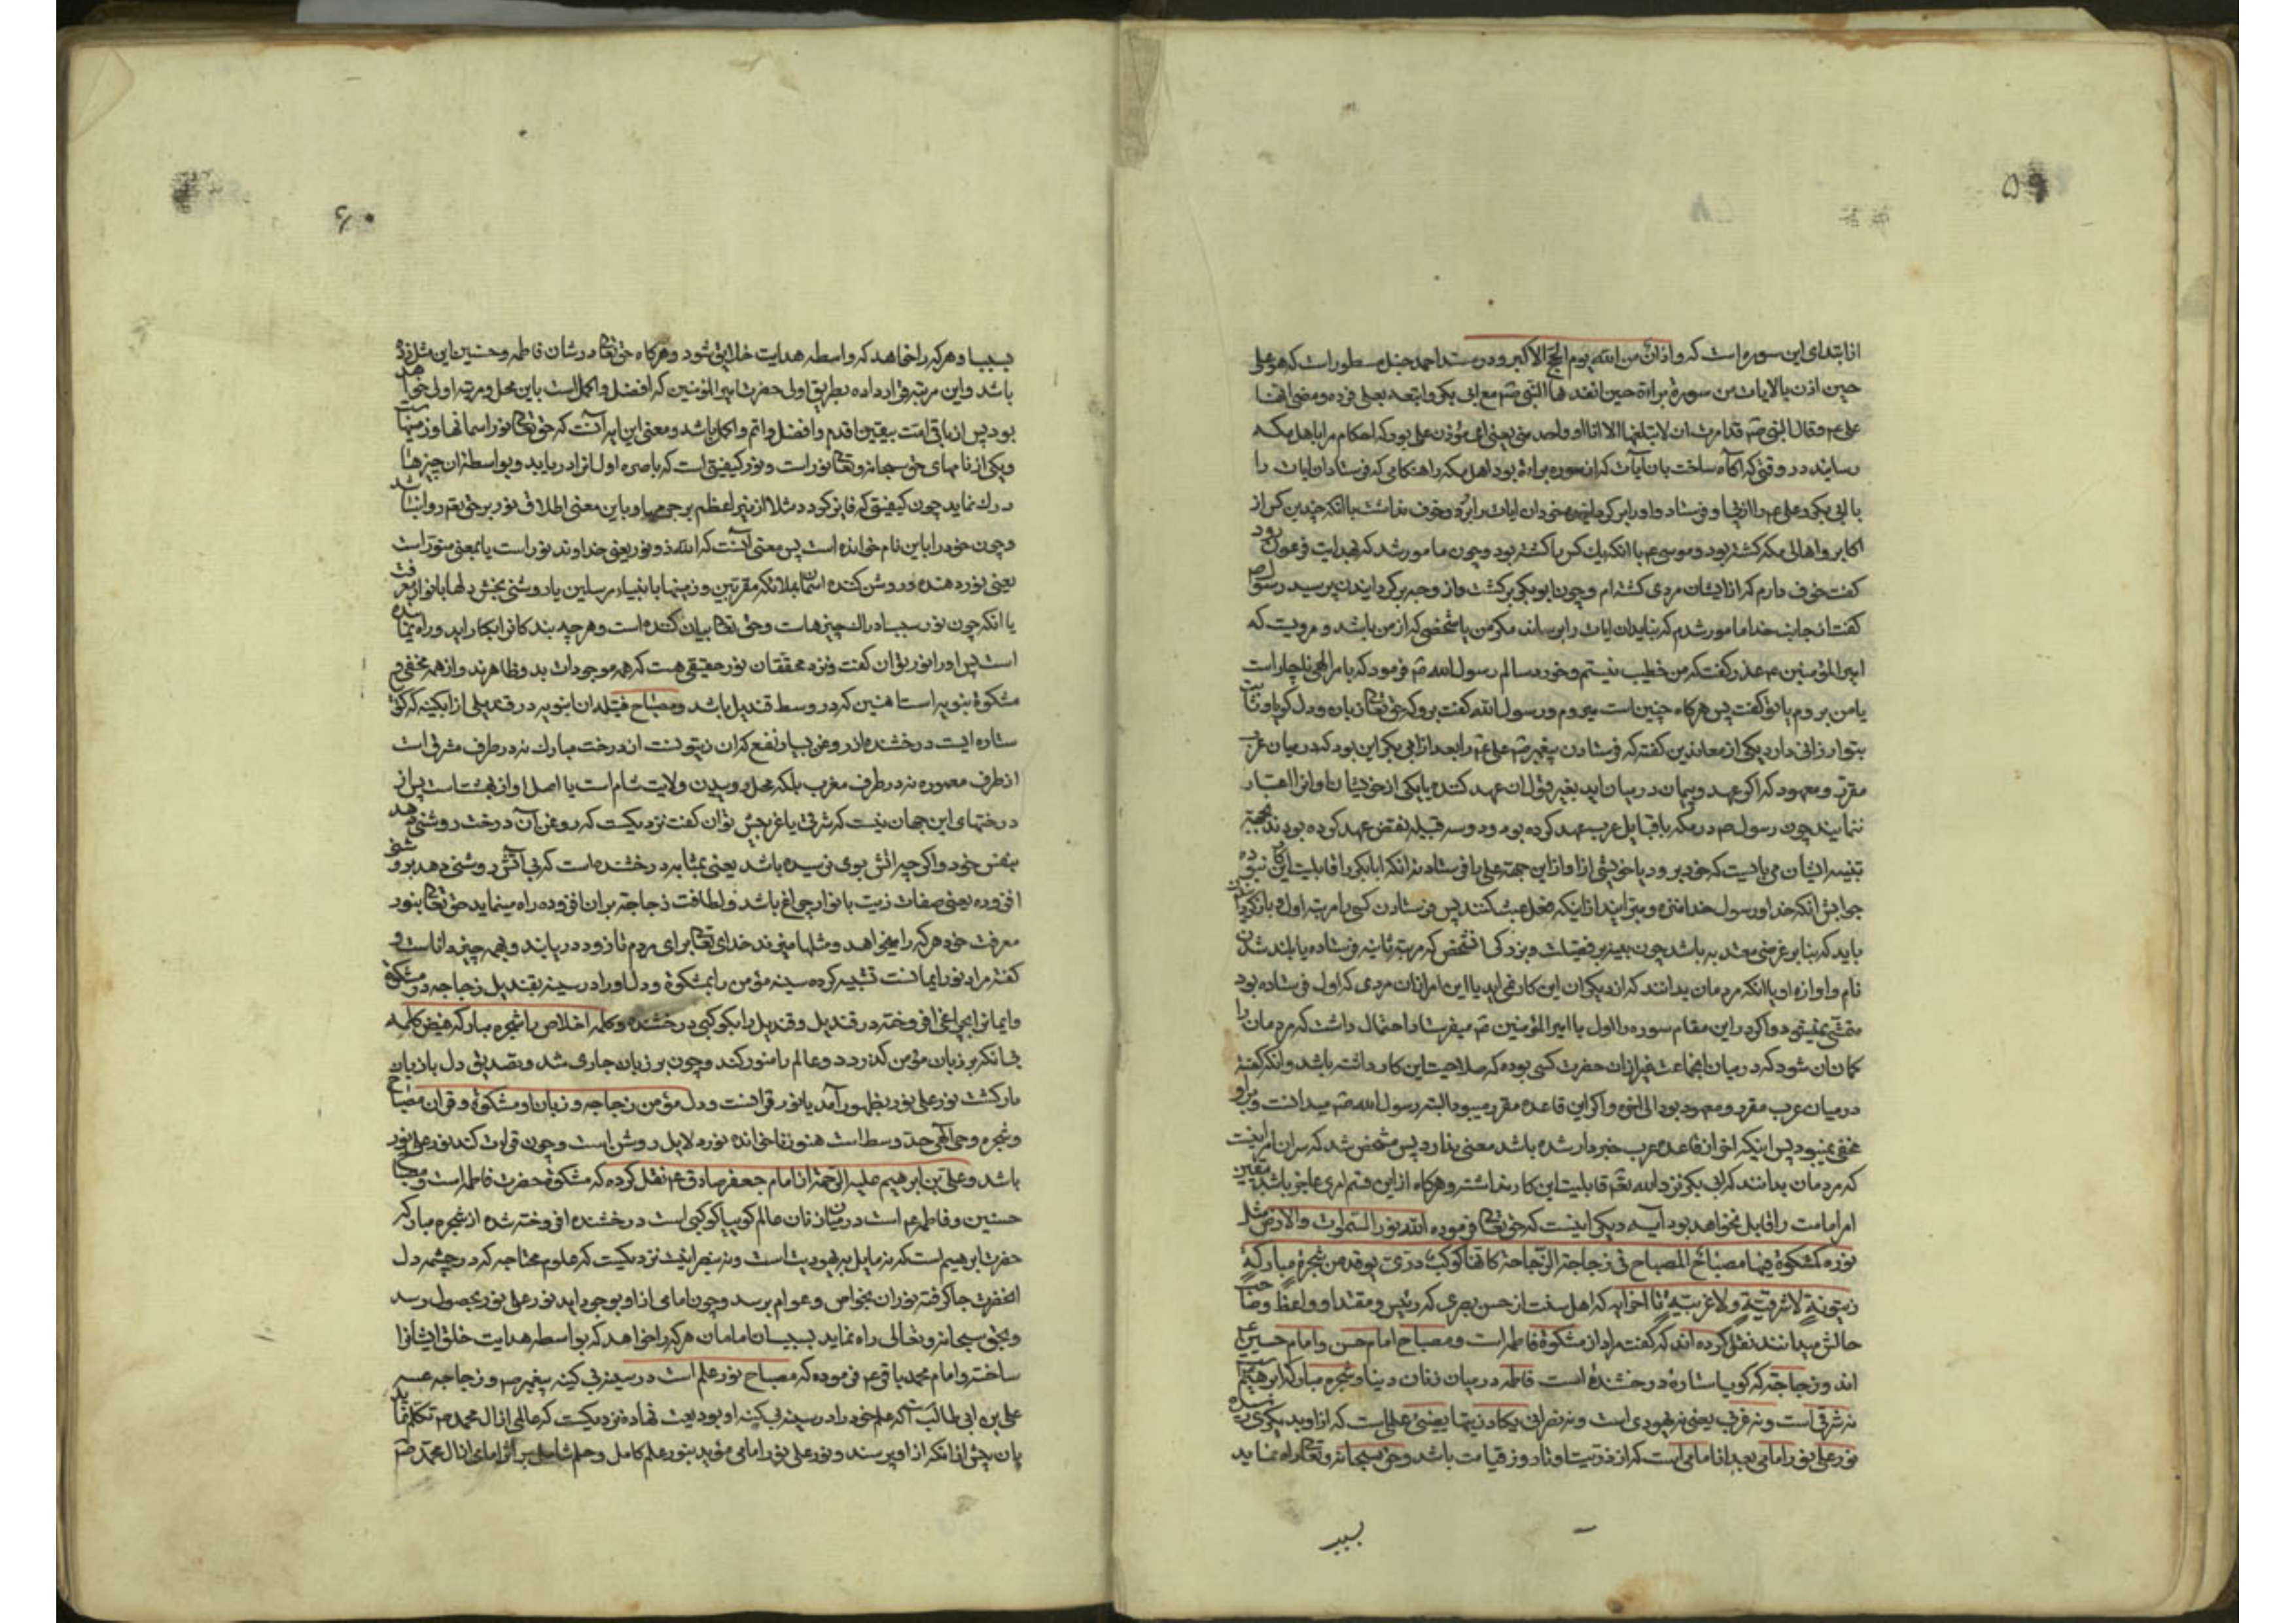 ۵۹
از ابتدای این سوره است که و اذان من الله یوم الحج الاکبر و در مسند احمد حنبل مسطور است که هو علی
حین اذن بالایات من سورة براءة حین انفدها النبی صم مع ابی بکر واتبعه بعلی فرده ومضی بها
علی عم وقال النبی صم قد امرت ان لا یبلغها الا انا او واحد منی یعنی مؤذن علی بود که احکام مرا باهل مکه
رسانیده در وقتی که آگاه ساخت بان آیات که از سوره براءة بود اهل مکه را هنکامی که فرستاد ان ایات را
با ابی بکر و علی عم را از پی او فرستاد و او را برکردانید ان ایات را برد و خوف نداشت با انکه چندین کس از
اکابر و اهالی مکه کشته بود و موسی عم با انکه یک کس را کشته بود و چون مامور شد که بهدایت فرعون رود
کفت خوف دارم که از ایشان مردی کشته ام و چون ابو بکر برکشت و از وجه برکردانیدن پرسید رسول صم
کفت از جانب خدا مامور شدم که نباید ان ایات را برساند مکر من یا شخصی که از من باشد و مرویست که
امیر المؤمنین عم عذر کفت که من خطیب نیستم و خورد سالم رسول الله صم فرمود که بامر الهی ناچار است
یا من بروم یا تو کفت پس هرکاه چنین است میروم و رسول الله کفت برو که حق تعالی زبان و دل کویا و ثابت
بتو ارزانی دارد یکی از معاندین کفته که فرستادن پیغمبر صم علی عم را بعد از ابی بکر این بود که در میان عرب
مقرر و معهود که اکر عهد و پیمان در میان اید بغیر قول ان عهد کننده یا یکی از خویشان او انرا اعتبار
ننمایند چون رسول صم در مکه با قبایل عرب عهد کرده بود و دو سه قبیله نقض عهد کرده بودند بجهة
تنبیه ایشان می بایست که خود برود یا خویشی از او از این جهة علی را فرستاد نه انکه ابا بکر را قابلیت این کار نبوده
جوابش انکه خدا و رسول خدا منزه و مبرا یند از اینکه فعل عبث کنند پس فرستادن کسی را مرتبه اول و بازکردانیدن
باید که بنابر غرضی معتد به باشد چون تنبیه بر فضیلت و بزرکی ا نشخص که مرتبه ثانیه فرستاده یا بلند شدن
نام و اوازه او یا انکه مردمان بدانند که از دیکران این کار نمی اید یا این امر از ان مردی که اول فرستاده بود
متمشی نمیشود و اکر در این مقام سوره را اول با امیر المؤمنین صم میفرستاد احتمال داشت که مردمان را
کمان ان شود که در میان انجماعت غیر از ان حضرت کسی بوده که صلاحیت این کار داشته باشد و انکه کفته
در میان عرب مقرر و معهود بود الی اخره و اکر این قاعده مقرر میبود البته رسول الله صم میدانست و بر او
مخفی نمیبود پس اینکه اخر از قاعده عرب خبردار شده باشد معنی ندارد پس مشخص شد که سر ان امر اینست
که مردمان بدانند که ابی بکر نزد الله تعم قابلیت این کار نداشته و هرکاه از این قسم امری عاجز باشد یقین
امر امامت را قابل نخواهد بود آیه دیکر اینست که حق تعالی فرموده الله نور السموات والارض مثل
نوره کمشکوة فیها مصباح المصباح فی زجاجة الزجاجة کانها کوکب دری یوقد من شجرة مبارکة
زیتونة لا شرقیة ولا غربیة تا اخر ایه که اهل سنت از حسن بصری که رئیس و مقتدا و واعظ و صاحب
حالش میدانند نقل کرده اند که کفت مراد از مشکوة فاطمه است و مصباح امام حسن و امام حسین
اند و زجاجة که کویا ستاره درخشنده است فاطمه در میان زنان دنیا و شجره مبارکه ابرهیم
نه شرقی است و نه غربی یعنی نه یهودی است و نه نصرانی یکاد زیتها یضیئ علمی است که از او بدیکری
نور علی نور امامی بعد از امامی است که از ذریت او تا روز قیامت باشد و حق سبحانه و تعالی راه نماید
بسبب
۶۰
بسبب او هرکه را خواهد که واسطه هدایت خلایق شود و هرکاه حق تعالی در شان فاطمه و حسنین این مثل زده
باشد و این مرتبه قرار داده بطریق اولی حضرت امیر المؤمنین که افضل و اکمل است باین محل و مرتبه اولی خواهد
بود پس از باقی امت بیقین اقدم و افضل و اتم و اکمل باشد و معنی این ایه آنست که حق تعالی نور اسمانها و زمینهاست
و یکی از نامهای حق سبحانه و تعالی نور است و نور کیفیتی است که باصره اول انرا دریابد و بواسطه آن چیزها
درک نماید چون کیفیتی که فایز کردد مثلا از نیر اعظم بر جرمها و باین معنی اطلاق نور بر حق تعم روا نباشد
و چون خود را باین نام خوانده است پس معنی آنست که الله ذو نور یعنی خداوند نور است یا بمعنی منور است
یعنی نور دهنده و روشن کننده اسمان بملائکه مقربین و زمینها بانبیاء مرسلین یا روشنی بخش دلها بانوار معرفت
یا انکه چون نور سبب ادراک چیزهاست و حق تعالی بیان کننده است و هرچه بندکانرا بکار اید و راه نماینده
است پس او را نور توان کفت و نزد محققان نور حقیقی هست که همه موجودات بدو ظاهرند و از همه مخفی و
مشکوة بنوبه است اهنین که در وسط قندیل باشد و مصباح فتیله ان انبوبه در قندیلی از ابکینه که کویا
ستاره ایست درخشنده از روغن بسیار نفع که ان زیتونست ان درخت مبارک نه در طرف مشرقی است
از طرف معموره نه در طرف مغرب بلکه محل روییدن ولایت شام است یا اصل او از بهشت است پس از
درختهای این جهان نیست که شرقی یا غربیش توان کفت نزدیکست که روغن آن درخت روشنی دهد
بنفس خود و اکرچه اتش بوی نرسیده باشد یعنی بمثابه درخشنده است که بی آتش روشنی دهد بر روشنی
افزوده یعنی صفات زیت با نوار چراغ باشد و لطافت زجاجة بر ان افزوده راه مینماید حق تعالی بنور
معرفت خود هرکه را میخواهد و مثلها میزند خدای تعالی برای مردم تا زود دریابند و بهمه چیز داناست و
کفته مراد نور ایمانست تشبیه کرده سینه مؤمن را بمشکوة و دل او را در سینه بقندیل زجاجه در مشکوة
و ایمانرا بچراغی افروخته در قندیل و قندیل را بکوکبی درخشنده و کلمه اخلاص را شجره مبارکه فیض کلمه
بی انکه بر زبان مؤمن کذرد دو عالم را منور کند و چون بر زبان جاری شد و تصدیق دل با زبان
یار کشت نور علی نور بظهور آمد یا نور قرانست و دل مؤمن زجاجه و زبان او مشکوة و قران مصباح
و شجره وحی آلهی حد وسط است هنوز ناخوانده نوره لایل روشن است و چون قراءت کنند نور علی نور
باشد و علی بن ابرهیم علیه الرحمة از امام جعفر صادق عم نقل کرده که مشکوة حضرت فاطمه است و مصباح
حسنین و فاطمه عم است در میان زنان عالم کوییا کوکبی است درخشنده افروخته شده از شجره مبارکه
حضرت ابرهیم است که نه مایل به یهودیت است و نه بنصرانیت نزدیکیست که علوم محتاجه که در چشمه دل
انحضرت جا کرفته نوران بخواص و عوام برسد و چون امامی از او بوجود اید نور علی نور بحصول رسد
و بحق سبحانه و تعالی راه نماید بسبب ان امامان هرکه را خواهد که بواسطه هدایت خلق ایشانرا
ساخته و امام محمد باقر عم فرموده که مصباح نور علم است در سینه بی کینه پیغمبر صم و زجاجه سینه
علی بن ابی طالبست که علم خود را در سینه بی کینه او بودیعت نهاده نزدیکست که عالمی از ال محمد صم تکلم نماید
بان پیش از انکه از او پرسند و نور علی نور امامی مؤید بنور علم کامل و حلم شامل بر اثر امامی از ال محمد صم